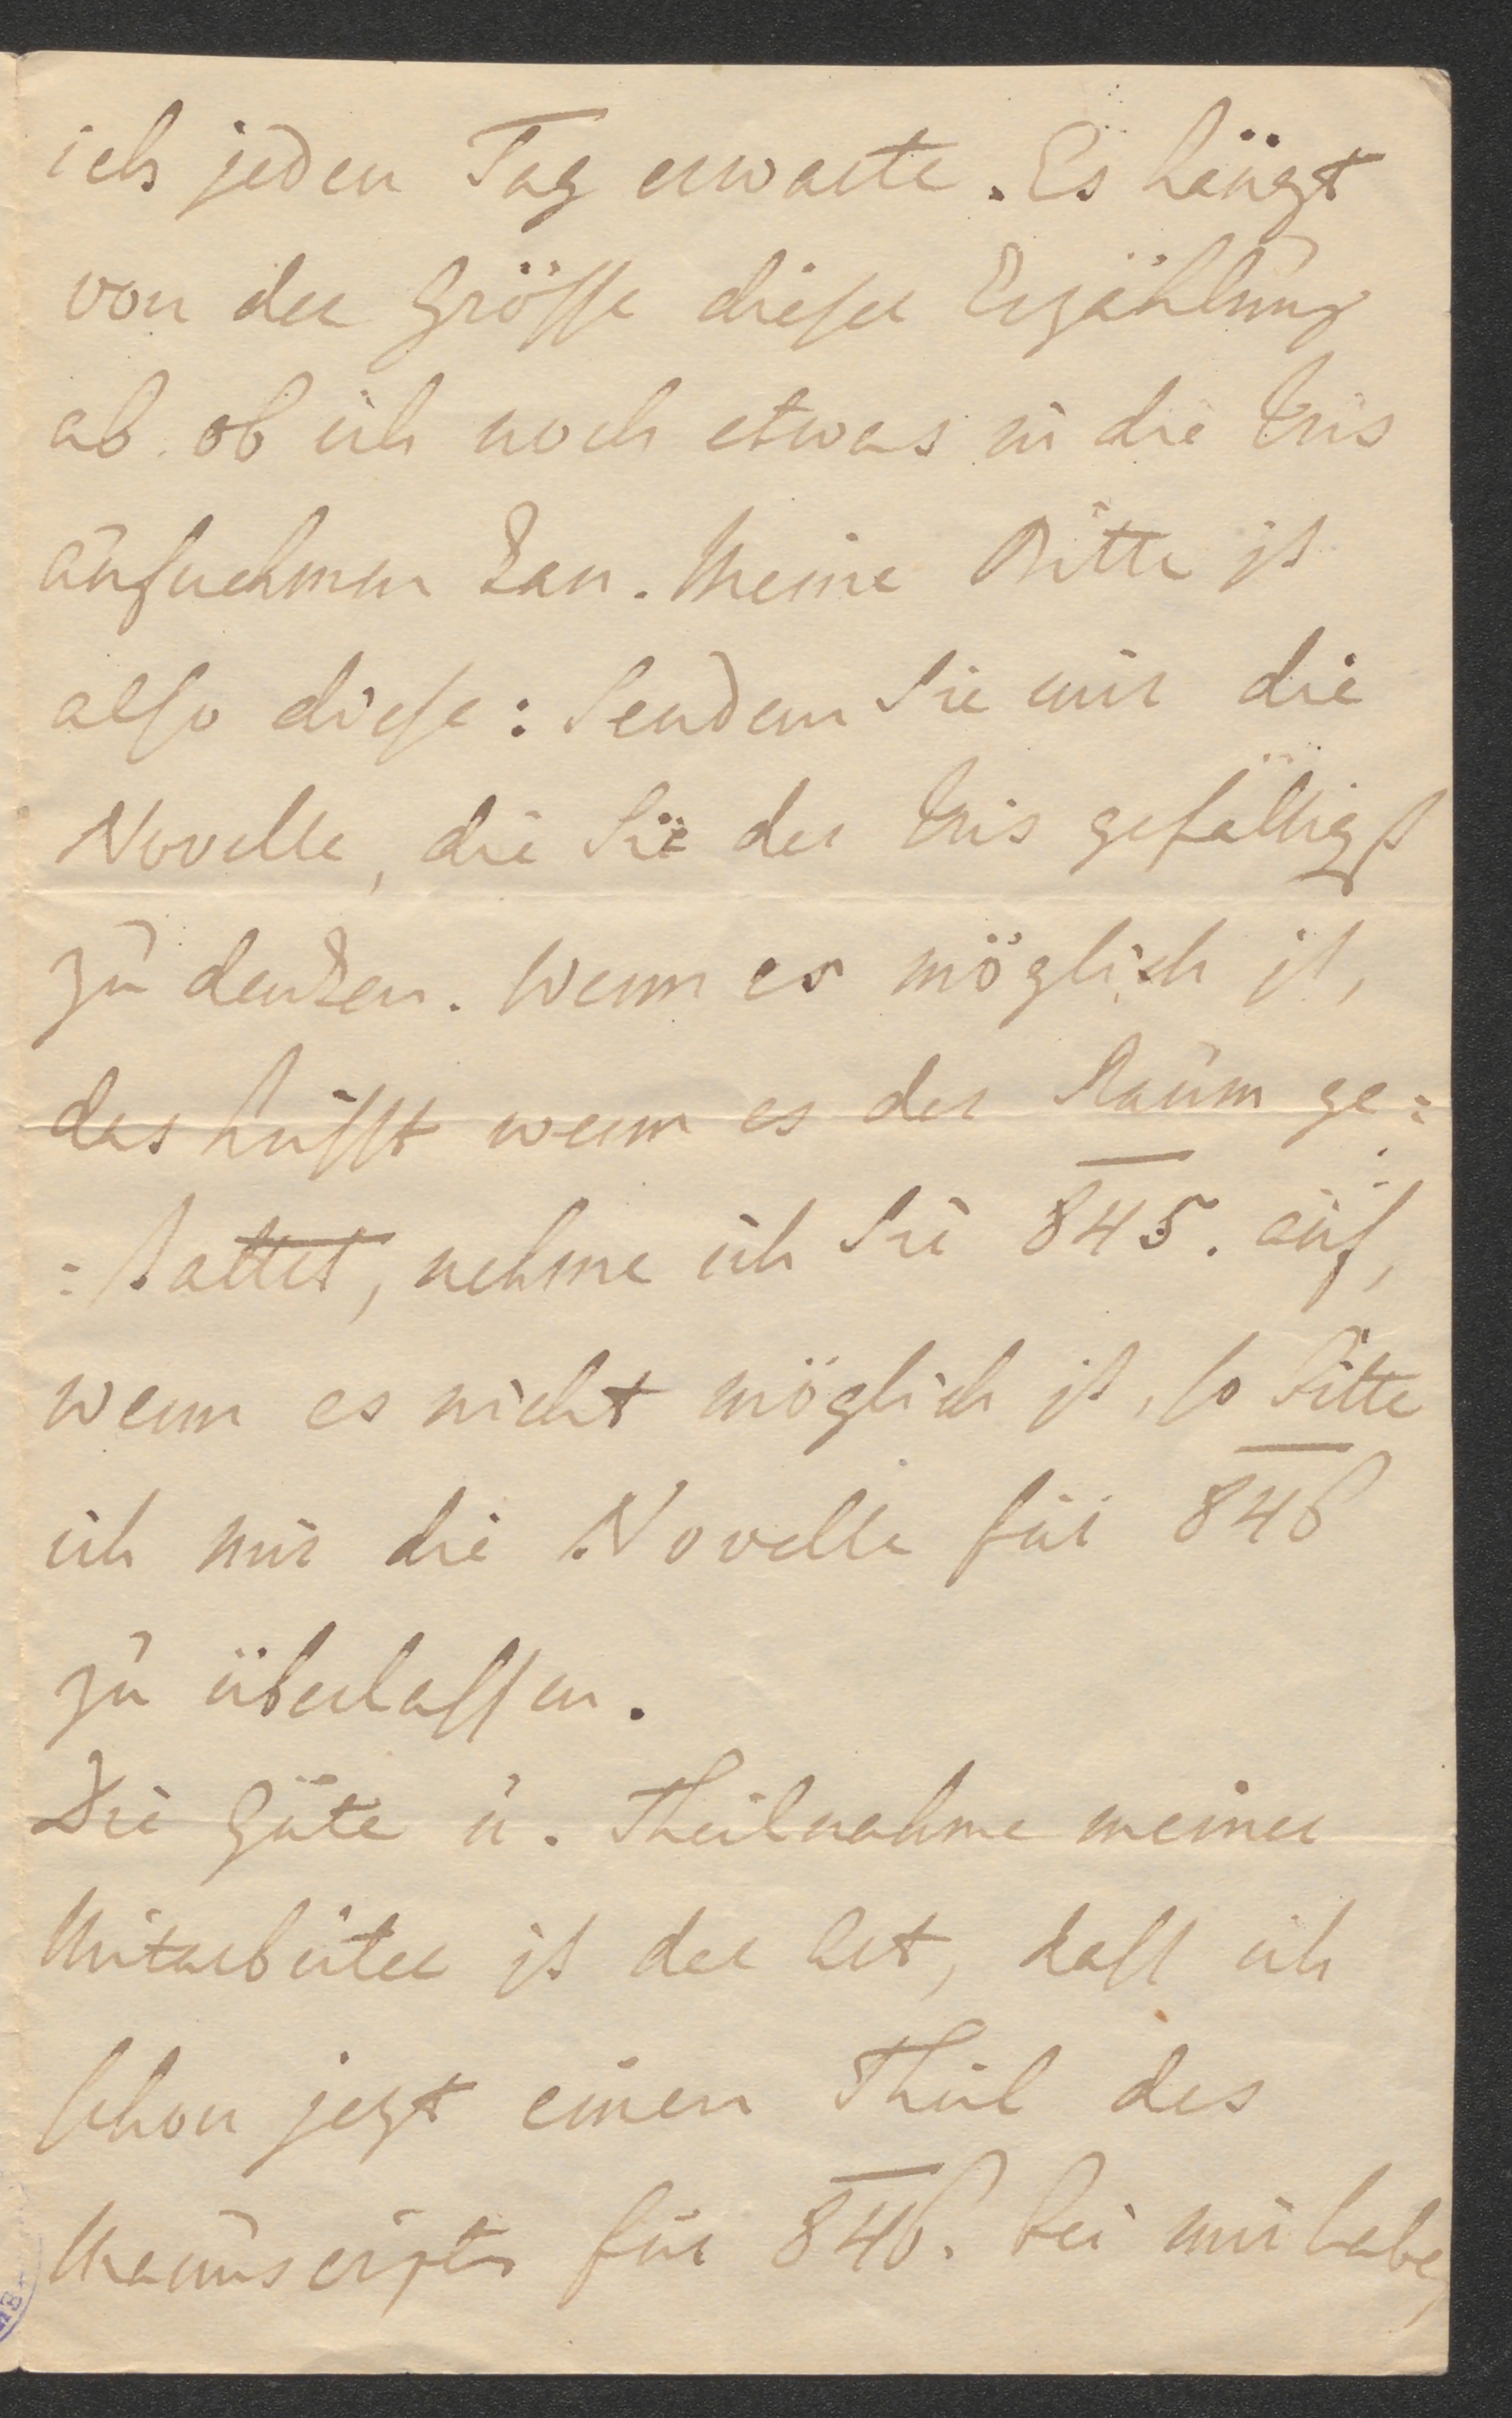 ich jeden Tag erwarte. Es hängt
von der Grösse dieser Erzählung
ab ob ich noch etwas in die Iris
aufnehmen kan. Meine Bitte ist
also diese: Senden Sie mir die
Novelle, die Sie der Iris gefälligst
zu denken. Wenn es möglich ist,
das heisst wenn es der Raum ge=
=stattet, nehme ich Sie 845. auf,
wenn es nicht möglich ist, so bitte
ich mir die Novelle für 846
zu überlassen.
Die Güte u. Theilnahme meiner
Mitarbeiter ist der Art, dass ich
schon jezt einen Theil des
Manuscripts für 846. bei mir habe,